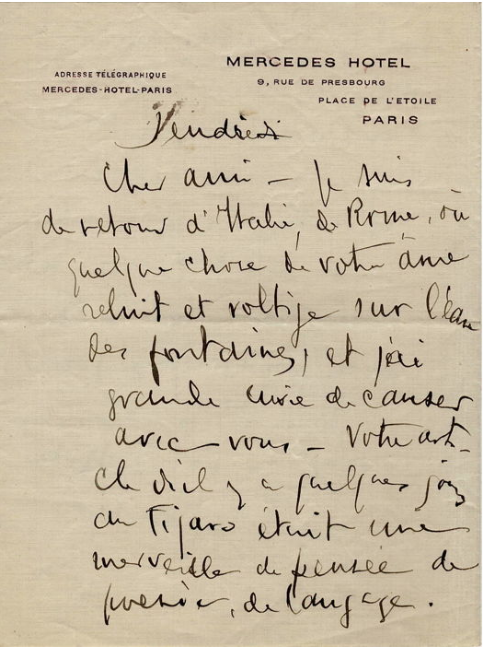 MERCEDES HOTEL
9, RUE DE PRESBOURG
PLACE DE L'ETOILE
PARIS
ADRESSE TÉLÉGRAPHIQUE
MERCEDES-HOTEL-PARIS
Vendredi
Cher ami — Je suis
de retour d'Italie, de Rome, où
quelque chose de votre âme
reluit et voltige sur l'eau
des fontaines, et j'ai
grande envie de causer
avec vous — Votre arti-
cle d'il y a quelques jours
du Figaro était une
merveille de pensée de
poésie, de langage.